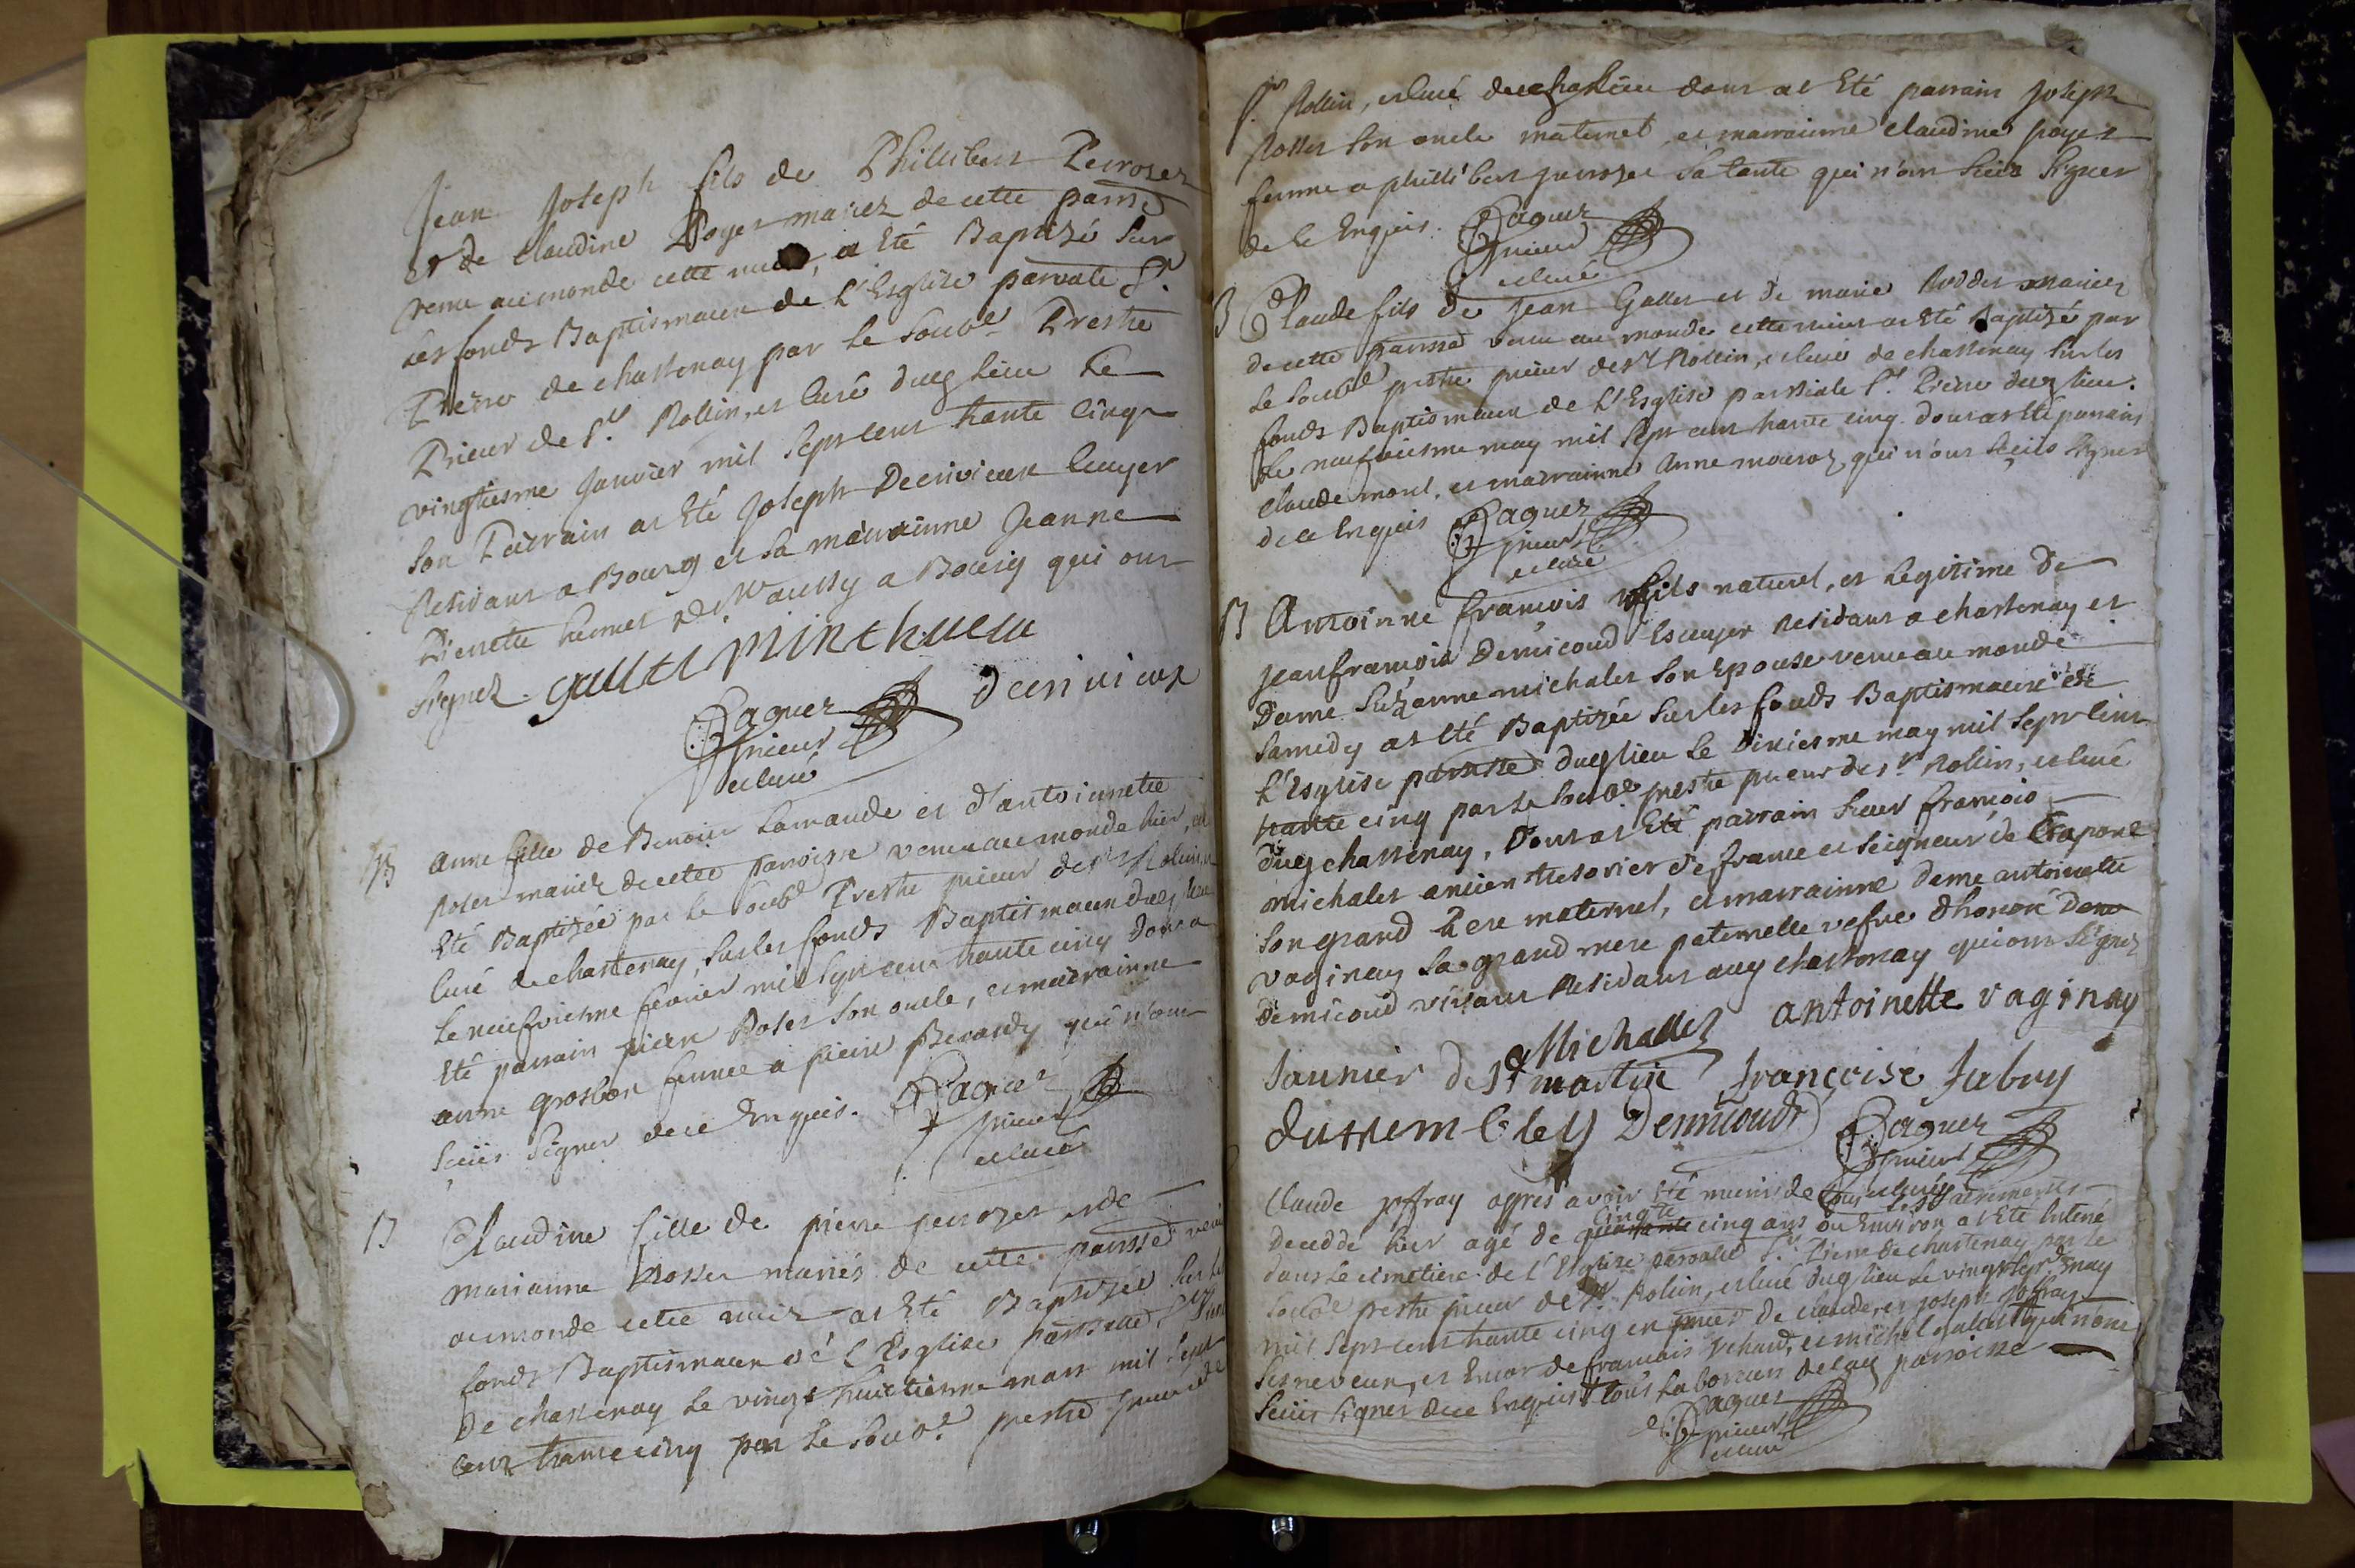 Jean Joseph fils de Philibert Perrozet
et de Claudine Poyet mariez de cette parrsse
venu au monde cette nuit, a Eté Baptizé sur
les fonds Baptismaux de L'Esglise parroale St.
Pierre de chastenay par Le Soubé Prestre
Prieur de St. Rollin, et Curé dudg lieu Le
vingtiesme Janvier mil Sept cent trante Cinq
Son Parrain at Eté Joseph Decrivieux Ecuyer
Residant a Bourg et sa marrainne Jeanne
Pierrette de Maussy a Bourg qui ont
Signez. gallet minthueu
decrivieux
Paquer
prieur
et curé
B Anne fille de Benoit Lamande et d'antoinette
Poset mariez de cette Paroisse venue au monde hier, at
Eté Baptizée par Le Soubé Prestre prieur de St Rolin, et
Curé de chastenay, sur les fonds Baptismaux dudg lieu
Le neufviesme fevrier mil Sept cent trante cinq dont a
Eté parrain pierre Poset son oncle, et marrainne
anne grosbon femme a pierre Berardy qui n'ont
Sceüs Signer de ce Enquis. Paquer
prieur
et curé
B Claudine fille de pierre perrozet et de
marianne Rosset mariés de cette parrsse venue
au monde cette nuit at Eté Baptizée Sur les
fonds Baptismaux de L'Esglise parrsialle St Pierre
De chastenay Le vingt huictiesme mars mil Sept
cent trante cinq par Le Soubé prestre prieur de
St. Rollin, et Curé dudg lieu dont at Eté parrain Joseph
Rosset Son oncle maternel, et marrainne claudine poyet
femme a phillibert perrozet Sa tante qui n'ont Sceüs Signer
de ce Enquis. Paquer
prieur
et curé
B Claude fils de Jean Gallet et de marie Roddet mariez
de cette parrsse venu au monde cette nuit at Eté Baptizé par
Le Soubé prestre prieur de St Rollin, et Curé de chastenay Sur les
fonds Baptismaux de L'Esglise parrsiale St. Pierre dudg lieu.
Le neufviesme may mil Sept cent trante cinq dont at Eté parrain
Claude morel, et marrainne Anne qui n'ont Sceüs Signer
de ce Enquis Paquer
prieur
et curé
B Antoinne françois fils naturel, et Legitime De
Jean françois Demicoud Escuyer Residant a chastenay et
Dame Suzanne michalet Son Epouse venu au monde
Samedy at Eté Baptizée Sur les fonds Baptismaux de
L'Esglise parrsse dudg lieu Le dixiesme may mil Sept cent
trante cinq par Le Soubé prestre prieur de St Rollin, et Curé
dudg chastenay, Dont at Eté parrain Sieur françois
michalet ancien tresorier de france et Seigneur de Crapone
Son grand Pere maternel, et marrainne dame antoinette
vaginay Sa grand mere paternelle vefve d'honoré Dem
demicoud vivant Residant audg chastenay qui ont Signez
Michallet antoinette vaginay
Saunier de St martin françoise Jubry
Demicoud Paquer
prieur
et curé
Claude joffray apres avoir Eté muni de tous les Sacrements
decedde hier agé de quarante cinq ans ou Environ at Eté Enterré
cinqte
dans Le cimetiere de L'Esglise parroalle St. Pierre de chastenay par Le
Soubé prestre prieur de St. Rolin, et Curé dudg lieu Le vingt Sept may
mil Sept cent trante cinq en prnce de claude, et joseph joffray
Ses neveux, et Encor de francois jehard, et michel gallet qui n'ont
Sceüs Signer de ce Enquis tous Laboreurs de Lag parroisse
Paquer
prieur
et curé